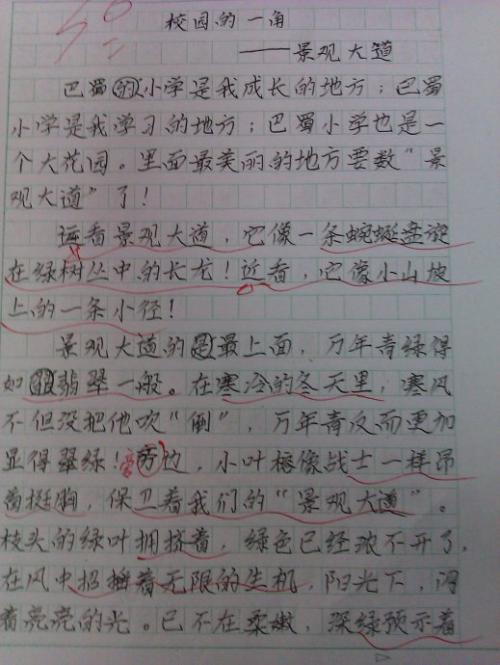 50
校园的一角
——景观大道
巴蜀的小学是我成长的地方；巴蜀
小学是我学习的地方；巴蜀小学也是一
个大花园。里面最美丽的地方要数“景
观大道”了！
远看景观大道，它像一条蜿蜒盘旋
在绿树丛中的长龙！近看，它像小山坡
上的一条小径！
景观大道的最上面，万年青绿得
如翡翠一般。在寒冷的冬天里，寒风
不但没把他吹“倒”，万年青反而更加
显得翠绿！旁边，小叶榕像战士一样昂
首挺胸，保卫着我们的“景观大道”。
枝头的绿叶拥挤着，绿色已经浓不开了，
在风中招摇着无限的生机，阳光下，闪
着亮亮的光。已不在柔嫩，深绿预示着